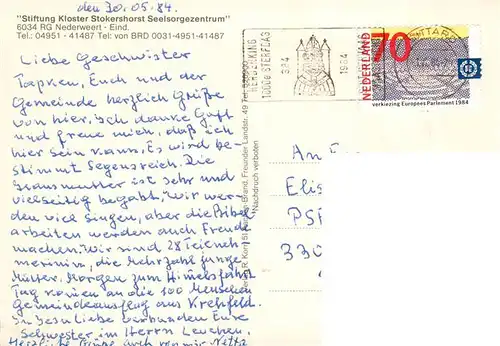 den 30.05.84.
"Stiftung Kloster Stokershorst Seelsorgezentrum"
6034 RG Nederweert - Eind.
Tel.: 04951 - 41487 Tel. von BRD 0031-4951-41487
Liebe Geschwister
Tapken, Euch und der
Gemeinde herzlich Grüße
von hier. Ich danke Gott
und freue mich, daß ich
hier sein kann. Es wird be-
stimmt Segensreich. Die
Hausmutter ist sehr und
vielseitig begabt, wir wer-
den viel singen, aber die Bibel
arbeiten werden auch Freude
machen. Wir sind 28 Teieneh
merinnin, die Mehrzahl junge
Mütter. Morgen zum Himmelsfahrt
Tag komen an die 100 Menschen
Gemeindeausflug aus Krehfeld.
In Jesu Liebe verbunden Eure
Schwester im Herrn Lenchen.
Herzliche Grüße auch von mir Netta
Nachdruck verboten
HERDENKING
1000e STERFDAG
984
1984
NEDERLAND
70
verkiezing Europees Parlement 1984
An
Elis
PSF
330